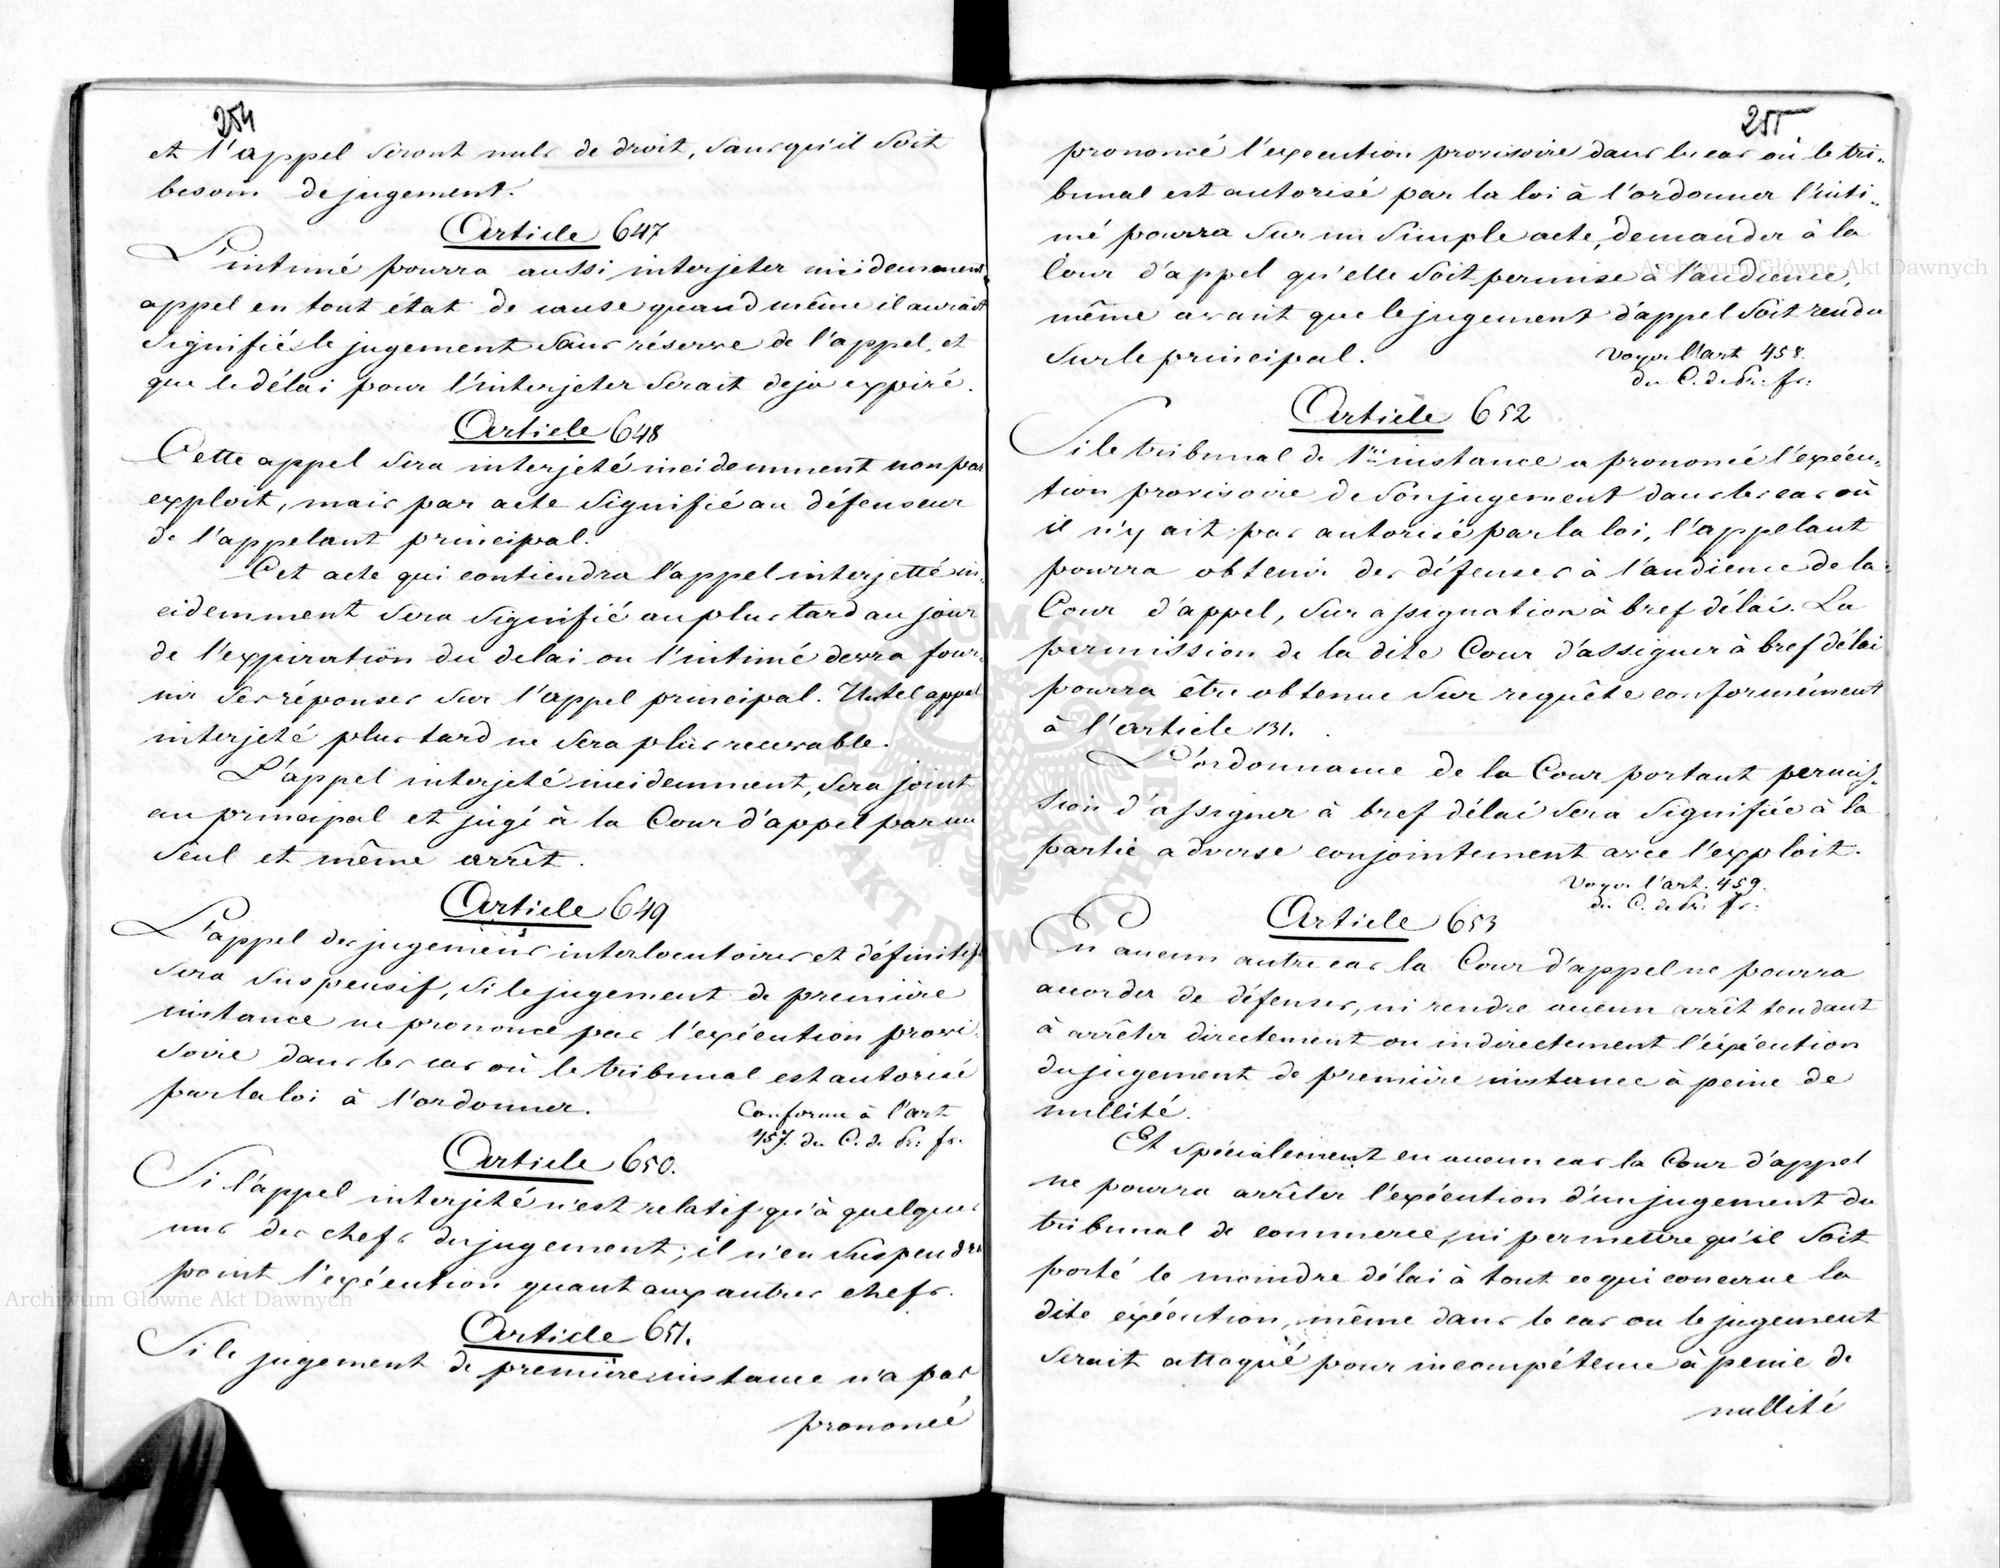 254
et l'appel seront nuls de droit, sans qu'il soit
besoin de jugement.
Article 647
L'intimé pourra aussi interjeter incidemment
appel en tout état de cause quand même il aurait
signifié le jugement sans réserve de l'appel, et
que le délai pour l'interjeter serait deja expiré.
Article 648
Cette appel sera interjeté incidemment non par
exploit, mais par acte signifié au défenseur
de l'appelant principal.
Cet acte qui contiendra l'appel interjetté in-
cidemment sera signifié au plus tard au jour
de l'expiration du delai ou l'intimé devra four-
nir ses réponses sur l'appel principal. Un tel appel
interjeté plus tard ne sera plus recevable.
L'appel interjeté incidemment, sera joint
au principal et jugé à la Cour d'appel par un
seul et même arrêt.
Article 649
L'appel des jugemens interlocutoires et définitifs
sera suspensif, si le jugement de première
instance ne prononce pas l'exécution provi-
soire dans les cas où le tribunal est autorisé
par la loi à l'ordonner.
Conforme à l'art
457. du C. de Pr: fr.
Article 650.
Si l'appel interjeté n'est relatif qu'à quelques
uns des chefs du jugement; il n'en suspendra
point l'exécution quant aux autres chefs.
Article 651.
Si le jugement de première instance n'a pas
prononcé
255
prononcé l'execution provisoire dans les cas où le tri-
bunal est autorisé par la loi à l'ordonner l'inti-
mé pourra sur un simple acte, demander à la
Cour d'appel qu'elle soit permise à l'audience,
même avant que le jugement d'appel soit rendu
sur le principal.
Voyez l'art 458.
du C. de Pr: fr:
Article 652
Si le tribunal de 1re instance a prononcé l'exécu-
tion provisoire de son jugement dans les cas où
il n'y ait pas autorisé par la loi, l'appelant
pourra obtenir des défenses à l'audience de la
Cour d'appel, sur assignation à bref délai. La
permission de la dite Cour d'assigner à bref délai
pourra être obtenue sur requête conformément
à l'article 131.
L'ordonnance de la Cour portant permis-
sion d'assigner à bref délai sera signifiée à la
partie adverse conjointement avec l'exploit.
Voyez l'art. 459.
du C. de Pr: fr:
Article 653
En aucun autre cas la Cour d'appel ne pourra
accorder de défenses, ni rendre aucun arrêt tendant
à arrêter directement ou indirectement l'éxécution
du jugement de première instance à peine de
nullité.
Et spécialement en aucun cas la Cour d'appel
ne pourra arrêter l'exécution d'un jugement du
tribunal de commerce, ni permettre qu'il soit
porté le moindre délai à tout ce qui concerne la
dite exécution, même dans le cas ou le jugement
serait attaqué pour incompétence à peine de
nullité
Archiwum Główne Akt Dawnych
Archiwum Główne Akt Dawnych
ARCHIWUM GŁÓWNE AKT DAWNYCH